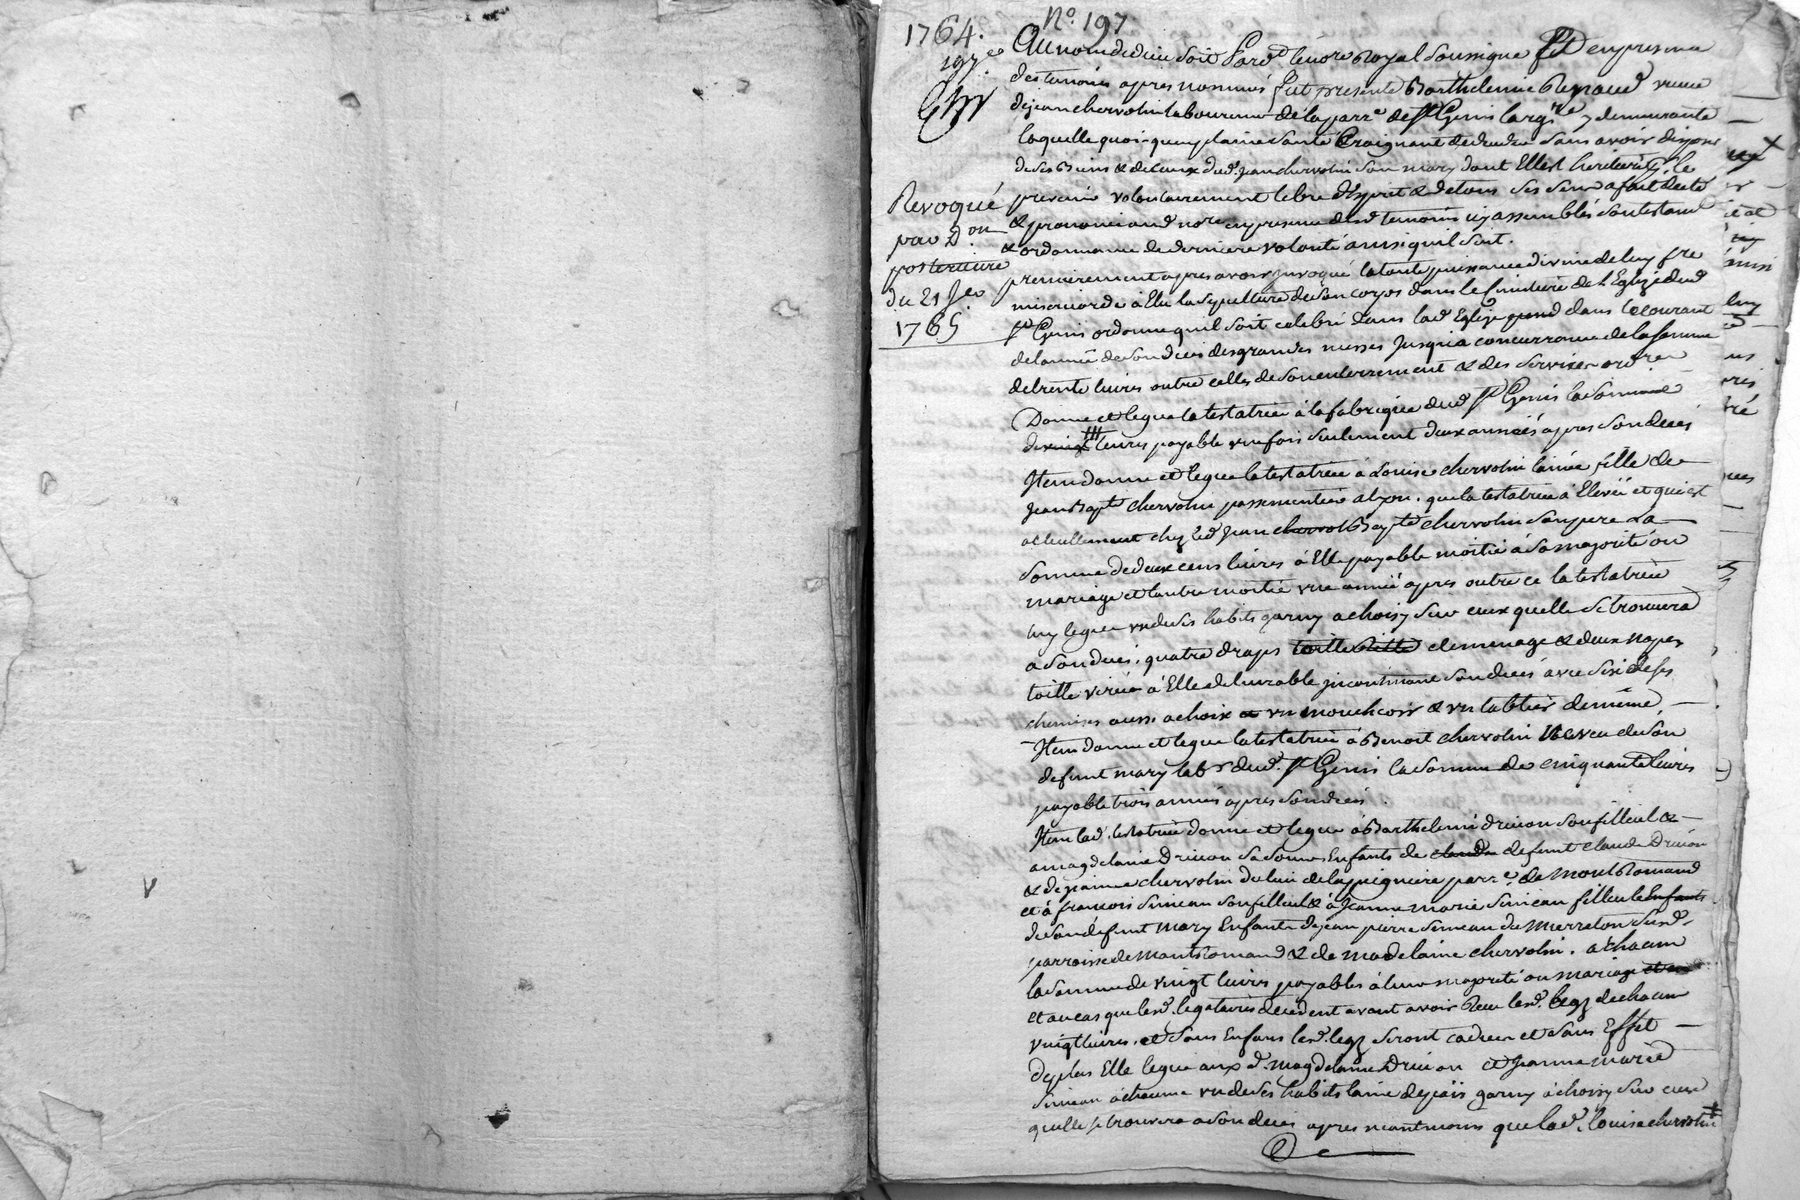 1764. N°. 197
197e
Au nom de dieu soit Pard. le nore Royal soussigne & en presence
des temoins apres nommés fut presente Barthelemie Renaud veuve
de jean chervolin laboureur de la parr.e de St Genis largre y demeurante
laquelle quoi-qu'en plaine santé Craignant de deceder sans avoir disposé
de ses Biens & de ceux dud. jean chervolin son mary dont Elle est heritiere, le
Revoqué
par D.on
posterieure
du 21
1765
prevenir volontairement libre d'Esprit & de tous ses sens a fait dicté
& prononcé aud nore en presence desd temoins icy assemblés son testament
& ordonnance de derniere volonté ainsi qu'il suit.
premierement apres avoir invoqué la toute puissance divine de luy fre
misericorde a Elu la sepulture de son corps dans le cimetiere de l'Eglize dud
St Genis ordonne qu'il soit celebré dans lad Eglize dans le courant
de l'année de son deces des grandes messes jusqu'a concurrance de la somme
de trente livres outre celles de son enterrement & des services ordres
Donne et legue la testatrice à la fabrique dud St Genis la somme
de vingt livres payable une fois seulement deux années apres son deces
Item donne et legue la testatrice à Louise chervolin lainée fille de
Jean Bapte chervolin passementier a lyon. que la testatrice à Elevée et qui est
actuellement chez led Jean Bapte chervolin son pere La
somme de deux cens livres à Elle payable moitié à sa majorité ou
mariage et l'autre moitié une année apres outre ce la testatrice
luy legue un de ses habits garny a choisy sur ceux quelle se trouvera
a son deces, quatre draps toille de menage & deux napes
toille à Elle delivrable incontinent son deces avec six de ses
chemises aussi a choix un mouchoir & un tablier de même
Item donne et legue la testatrice à Benoit chervolin Neveu de son
defunt mary labr dud. St Genis la somme de cinquante livres
payable trois années apres son deces.
Item lad. testatrice donne et legue à Barthelemi Drivon son filleul &
a magdelaine Drivon sa soeur Enfants de defunt claude Drivon
& de jeanne chervolin du lieu de parr.e de Montromand
et à francois Simean son filleul & à Jeanne marie Simean filleule
de son defunt mary Enfants de jean pierre Simean du Merreton susd.
parroisse de Montromand & de Madelaine chervolin. a chacun
la somme de vingt livres payables à leur majorité ou mariage
et au cas que lesd. legataires decedent avant avoir Recu lesd. legz de chacun
vingt livres. et sans Enfans lesd. legz seront caducs et sans Effet
de plus Elle legue aux d. magdelaine Drivon et jeanne marie
Simean à chacune un de ses habits laine garny à choisy sur ceux
qu'elle se trouvera a son deces apres neantmoins que lad. louise chervolin